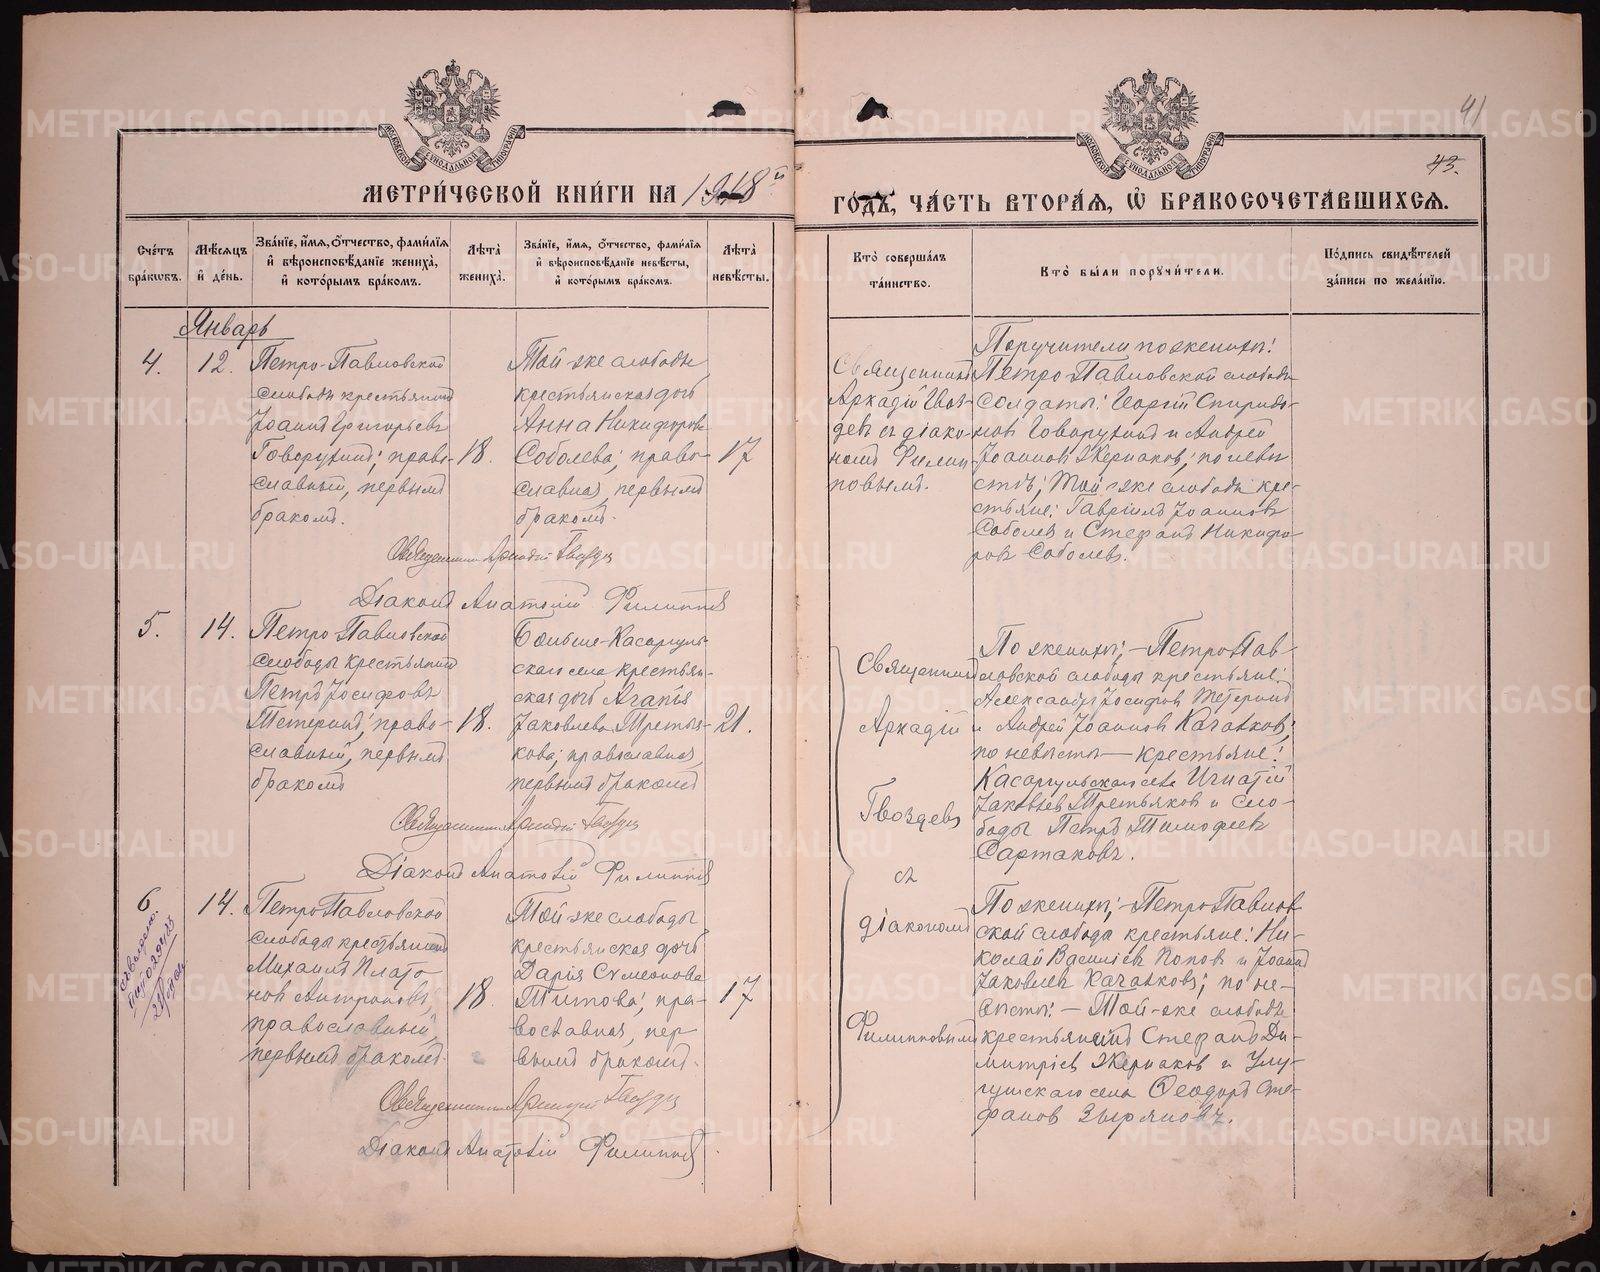 МЕТРИ́ЧЕСКОЙ КНИ́ГИ НА 1918й
ГОДЪ, ЧА́СТЬ ВТОРА́Я, Ѡ҆ БРАКОСОЧЕТА́ВШИХСЯ.
41
43.
Сче́тъ бра́кѡвъ.
Мѣ́сяцъ и҆ де́нь.
Зва́нїе, и҆́мя, ѻ҆́тчество, фами́лїя и҆ вѣроисповѣ́данїе жениха̀, и҆ кото́рымъ бра́комъ.
Лѣ́та жениха̀.
Зва́нїе, и҆́мя, ѻ҆́тчество, фами́лїя и҆ вѣроисповѣ́данїе невѣ́сты, и҆ кото́рымъ бра́комъ.
Лѣ́та невѣ́сты.
Кто̀ соверша́лъ та́инство.
Кто̀ бы́ли порꙋчи́тели.
По́дпись свидѣ́телей за́писи по жела́нїю.
Январь
4.
12.
Петро-Павловской
слободы крестьянинъ
Іоаннъ Григорьевъ
Говорухинъ; право-
славный, первымъ
бракомъ.
18.
Той-же слободы
крестьянская дочь
Анна Никифорова
Соболева; право-
славная, первымъ
бракомъ.
17
Священникъ
Аркадій Гвоз-
девъ съ діако-
номъ Филип-
повымъ.
Поручители по женихѣ:
Петро-Павловской слободы
солдаты: Георгій Спиридо-
новъ Говорухинъ и Андрей
Іоанновъ Жернаковъ; по невѣ-
стѣ; Той-же слободы кре-
стьяне: Гавріилъ Іоанновъ
Соболевъ и Стефанъ Никифо-
ровъ Соболевъ.
Священникъ Аркадій Гвоздевъ
Діаконъ Анатолій Филипповъ
5.
14.
Петро-Павловской
слободы крестьянинъ
Петръ Іосифовъ
Тетеринъ; право-
славный, первымъ
бракомъ
18.
Больше-Касаргуль-
скаго села крестьян-
ская дочь Агапія
Іаковлева Третья-
кова; православная,
первымъ бракомъ
21.
Священникъ
Аркадій
Гвоздевъ
съ
діакономъ
Филипповымъ
По женихѣ; — Петро-Пав-
ловской слободы крестьяне:
Александръ Іосифовъ Тетеринъ
и Андрей Іоанновъ Качалковъ;
по невѣстѣ — крестьяне:
Касаргульскаго села Игнатій
Іаковлевъ Третьяковъ и сло-
боды Петръ Тимофеевъ
Сартаковъ.
Священникъ Аркадій Гвоздевъ
Діаконъ Анатолій Филипповъ
6.
14.
Петро-Павловской
слободы крестьянинъ
Михаилъ Плато-
новъ Антроповъ;
православный,
первымъ бракомъ.
18.
Той-же слободы
крестьянская дочь
Дарія Симеонова
Титова; пра-
вославная, пер-
вымъ бракомъ.
17
По женихѣ; — Петро-Павлов-
ской слободы крестьяне: Ни-
колай Василіевъ Поповъ и Іоаннъ
Іаковлевъ Качалковъ; по не-
вѣстѣ: — Той-же слободы
крестьянинъ Стефанъ Ди-
митріевъ Жернаковъ и Улу-
гушскаго села Ѳеодоръ Сте-
фановъ Зыряновъ.
Священникъ Аркадій Гвоздевъ
Діаконъ Анатолій Филипповъ